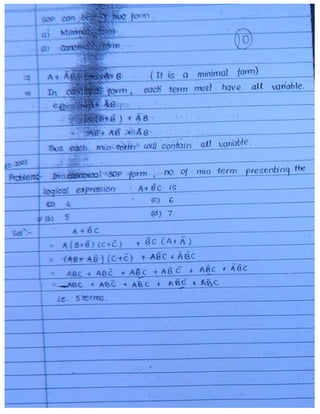 SOP can be of two form.
a) Minimal form
(10)
⇒ A + ĀB = A + B (It is a minimal form)
⇒ In canonical form, each term must have all variable.
e.g. A + ĀB
A(B+B̄) + ĀB
= AB + AB̄ + ĀB
Thus each min term will contain all variable.
2003
Problem:- In canonical SOP form, no of min term presenting the
logical expression A+B̄C is
(a) 4 (c) 6
(b) 5 (d) 7
Solⁿ:- A + B̄C
= A(B+B̄)(C+C̄) + B̄C (A+Ā)
= (AB+AB̄)(C+C̄) + AB̄C + ĀB̄C
= ABC + ABC̄ + AB̄C + AB̄C̄ + AB̄C + ĀB̄C
= ABC + ABC̄ + AB̄C + AB̄C̄ + ĀB̄C
i.e. 5 terms.